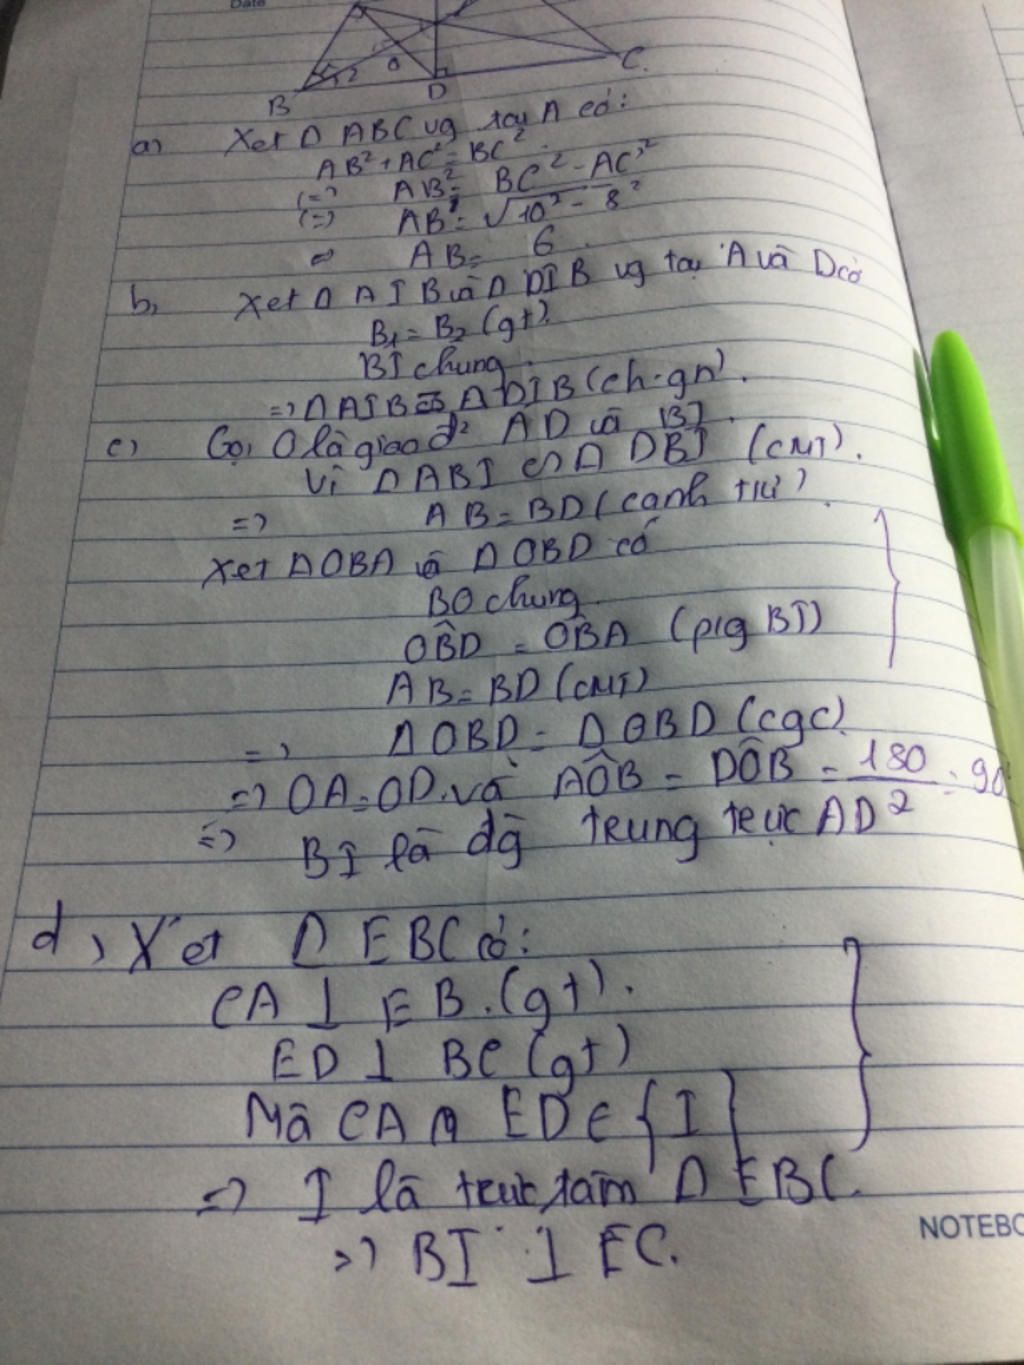 Date
B 2 O D C
a) Xét Δ ABC vg tại A có:
AB² + AC² = BC²
(=) AB² = BC² - AC²
(=) AB = √10² - 8²
AB = 6
b, Xét Δ AIB và Δ DIB vg tại A và D có
B₁ = B₂ (gt)
BI chung
=) Δ AIB = Δ DIB (ch.gn).
c) Gọi O là giao đ² AD và BI.
Vì Δ ABI = Δ DBI (CMT).
=) AB = BD (cạnh tư)
Xét Δ OBA và Δ OBD có
BO chung
OB̂D = OB̂A (pɪg BI)
AB = BD (CMT)
=) Δ OBD = Δ OBD (cgc)
=) OA = OD và AÔB = DÔB = 180/2 = 90
=) BI là đg trung trực AD
d, Xét Δ EBC có:
CA ⊥ EB. (gt).
ED ⊥ BC (gt)
Mà CA ∩ ED ∈ {I}
=) I là trực tâm Δ EBC.
=) BI ⊥ EC.
NOTEBO